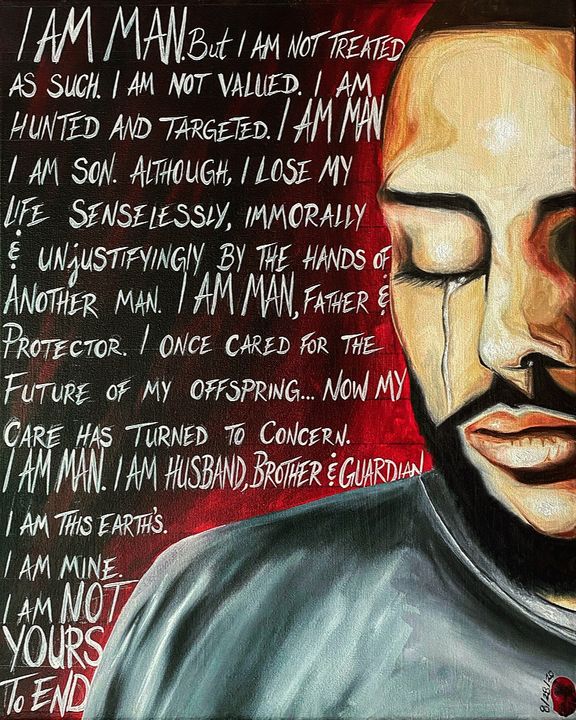 I AM MAN. But I AM NOT TREATED
AS SUCH. I AM NOT VALUED. I AM
HUNTED AND TARGETED. I AM MAN
I AM SON. ALTHOUGH, I LOSE MY
LIFE SENSELESSLY, IMMORALLY
& UNJUSTIFYINGLY BY THE HANDS OF
ANOTHER MAN. I AM MAN, FATHER &
PROTECTOR. I ONCE CARED FOR THE
FUTURE OF MY OFFSPRING... NOW MY
CARE HAS TURNED TO CONCERN.
I AM MAN. I AM HUSBAND, BROTHER & GUARDIAN
I AM THIS EARTH'S.
I AM MINE.
I AM NOT
YOURS
TO END
8/28/20